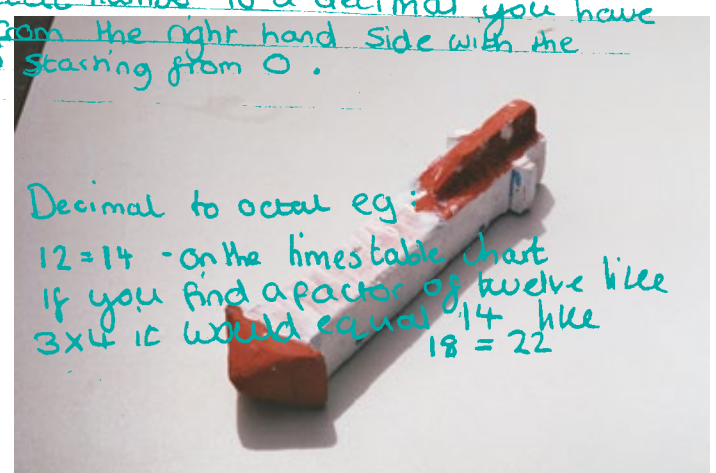 to a decimal you have
from the right hand side with the
starting from 0.
Decimal to octal eg:
12=14 - on the times table chart
if you find a factor of twelve like
3x4 it would equal 14 like
18 = 22